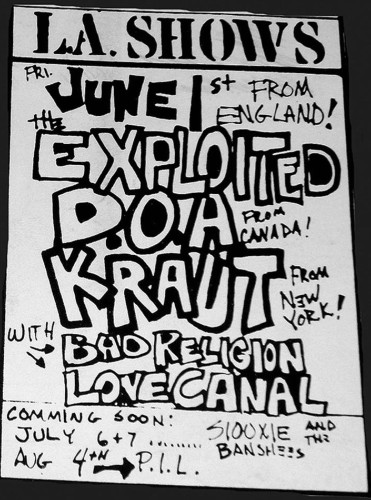 L.A. SHOWS
FRI. JUNE 1st FROM ENGLAND!
THE
EXPLOITED
D.O.A FROM CANADA!
KRAUT FROM NEW YORK!
WITH BAD RELIGION
LOVE CANAL
COMMING SOON!
JULY 6+7 ........ SIOUXIE AND THE BANSHEES
AUG 4TH P.I.L.